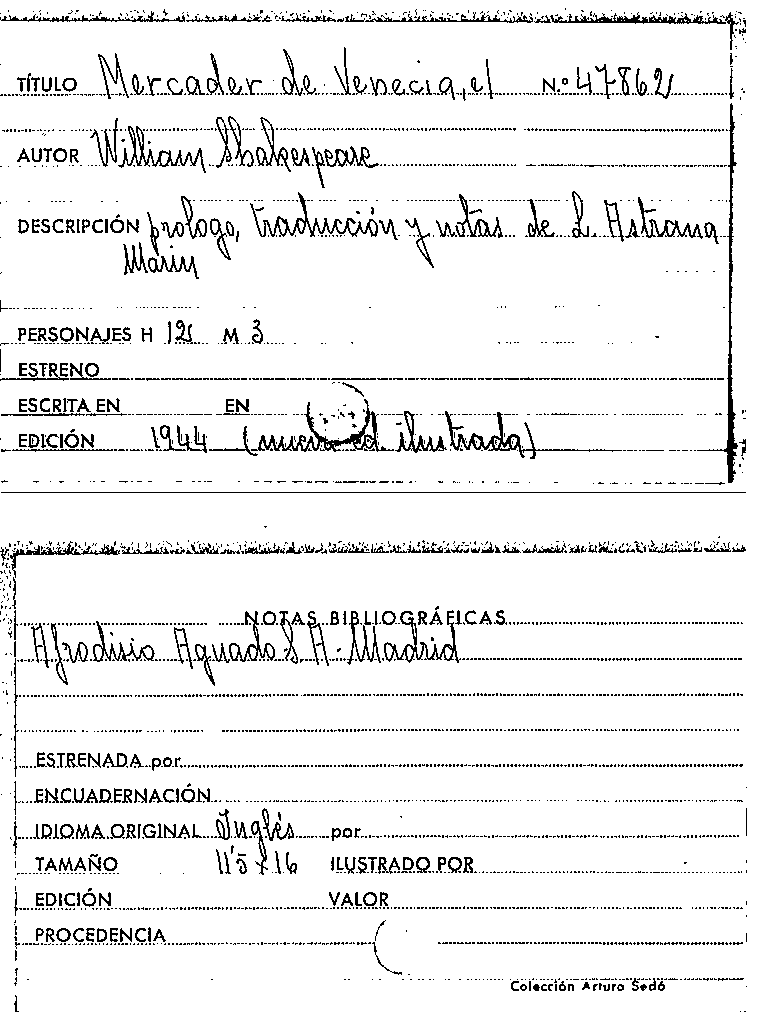 TÍTULO Mercader de Venecia, el N.º 47862
AUTOR William Shakespeare
DESCRIPCIÓN prologo, traducción y notas de L. Astrana
Marin
PERSONAJES H 12 M 3
ESTRENO
ESCRITA EN EN
EDICIÓN 1944 (nueva ed. ilustrada)
NOTAS BIBLIOGRÁFICAS
Afrodisio Aguado S.A. - Madrid
ESTRENADA por
ENCUADERNACIÓN
IDIOMA ORIGINAL Inglés por
TAMAÑO 11'5 x 16 ILUSTRADO POR
EDICIÓN VALOR
PROCEDENCIA
Colección Arturo Sedó